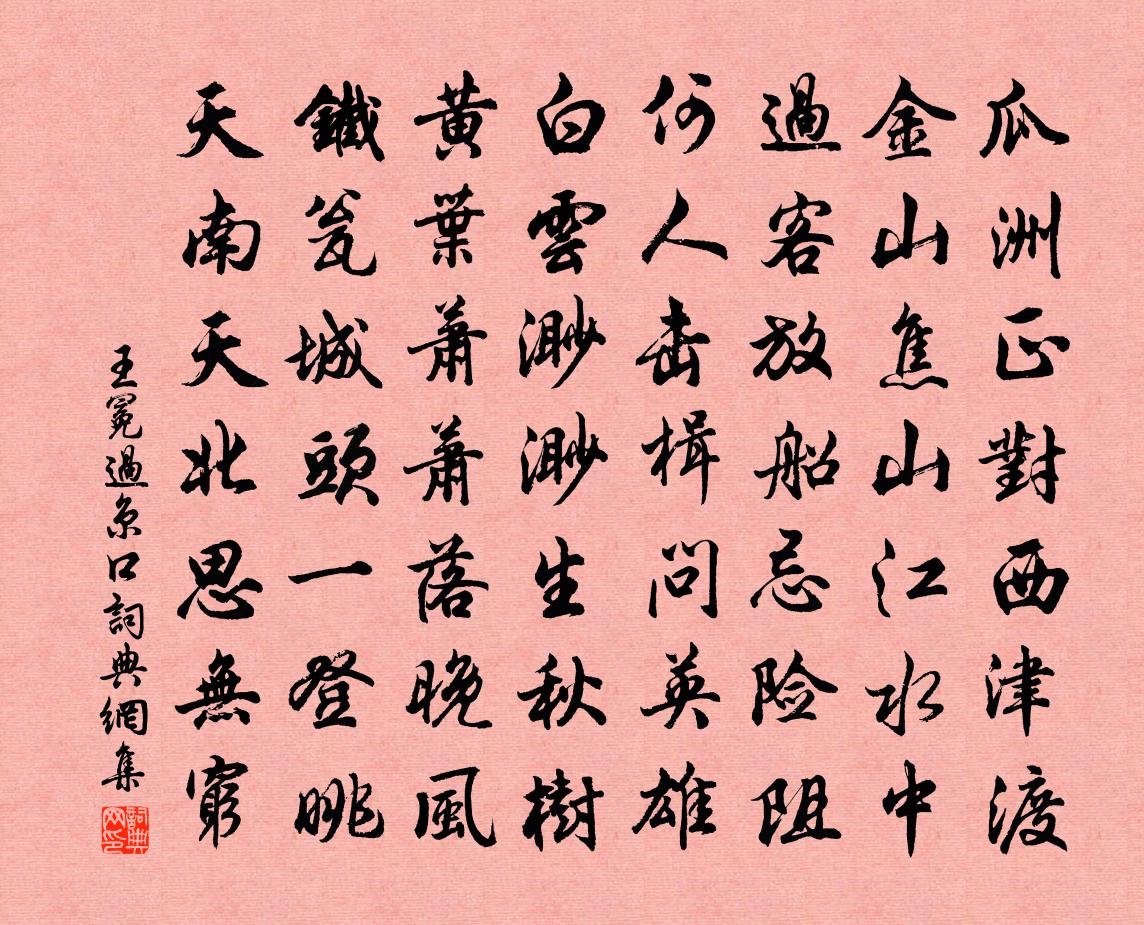 瓜洲正對西津渡
金山焦山江水中
過客放船忌险阻
何人击楫問英雄
白雲渺渺生秋樹
黄葉萧萧落晚風
鐵瓮城頭一登眺
天南天北思無窮
王冕過京口詞典網集
詞典网印